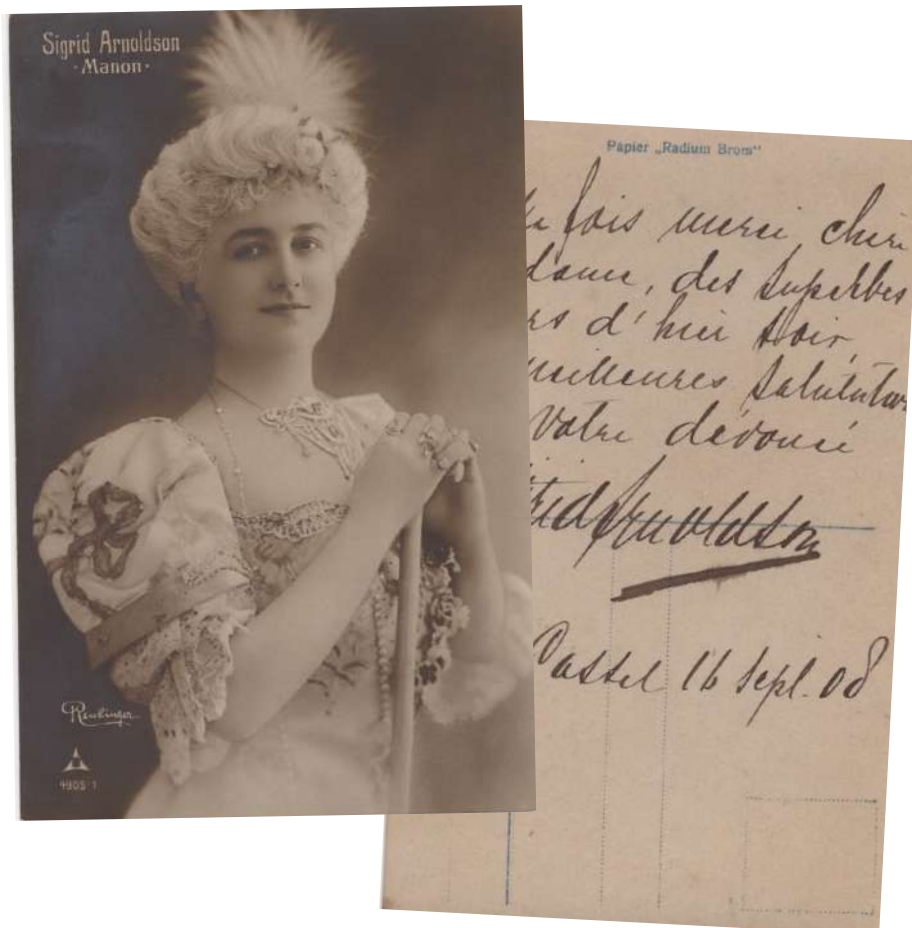 Sigrid Arnoldson
· Manon ·
Reutlinger
4905-1
Papier „Radium Brom“
fois merci chère
dame, des superbes
rs d'hier soir,
meilleures salutations
Votre dévoué
Arnoldson
Cassel 16 Sept. 08